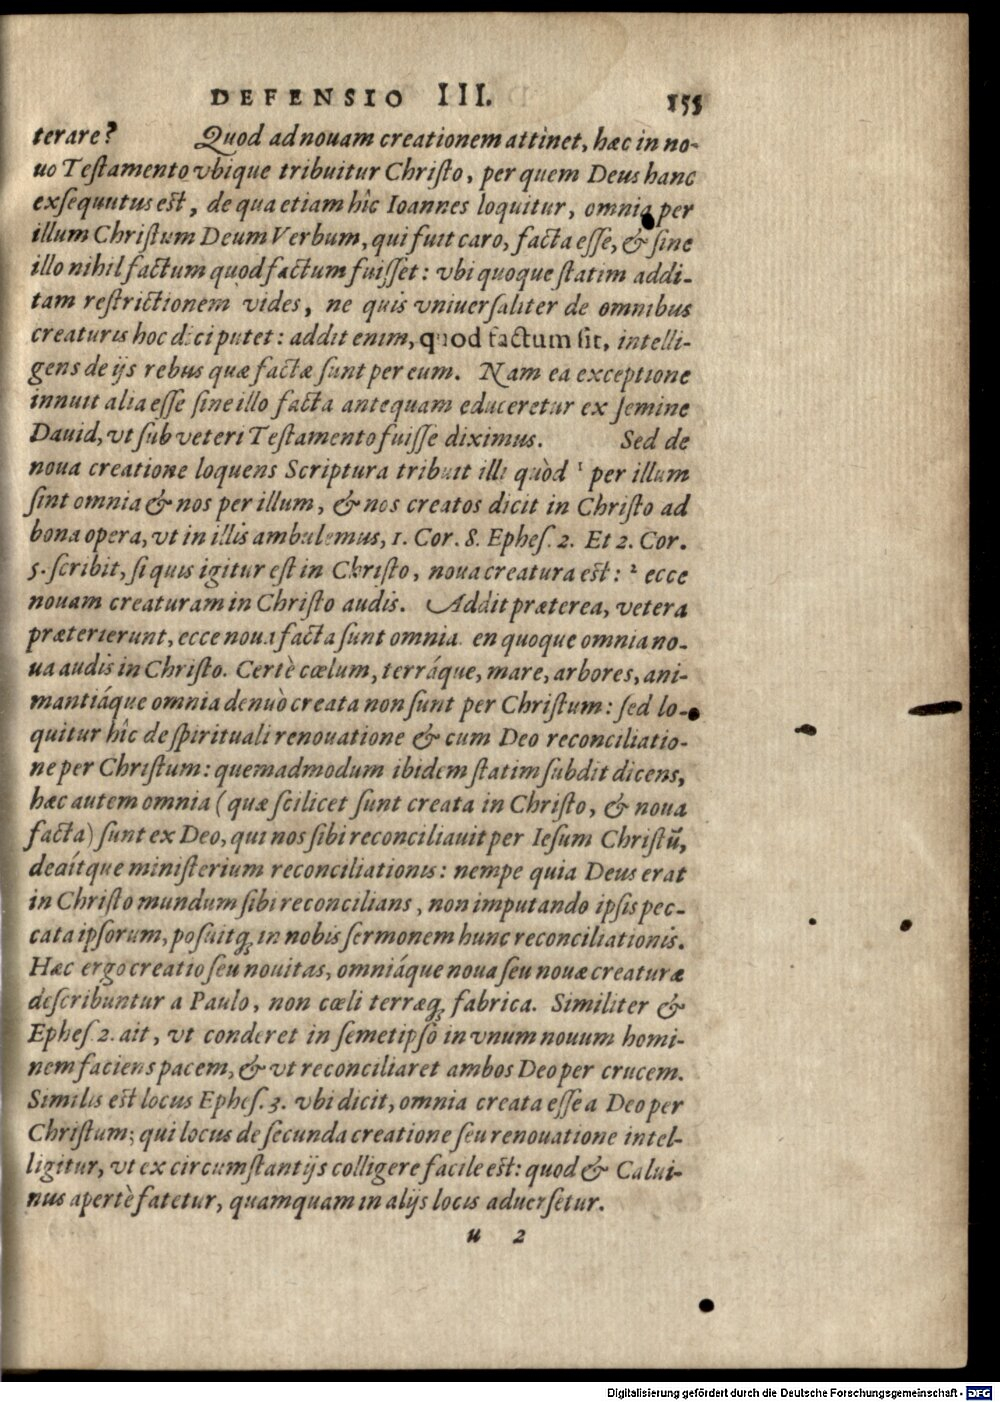 DEFENSIO III. 155
terare? Quod ad nouam creationem attinet, hæc in no-
uo Teſtamento vbique tribuitur Chriſto, per quem Deus hanc
exſequutus eſt, de qua etiam hîc Ioannes loquitur, omnia per
illum Chriſtum Deum Verbum, qui fuit caro, facta eſſe, & ſine
illo nihil factum quod factum fuiſſet: vbi quoque ſtatim addi-
tam reſtrictionem vides, ne quis vniuerſaliter de omnibus
creaturis hoc dici putet: addit enim, quod factum ſit, intelli-
gens de ijs rebus quæ factæ ſunt per eum. Nam ea exceptione
innuit alia eſſe ſine illo facta antequam educeretur ex ſemine
Dauid, vt ſub veteri Teſtamento fuiſſe diximus. Sed de
noua creatione loquens Scriptura tribuit illi quòd ¹ per illum
ſint omnia & nos per illum, & nos creatos dicit in Chriſto ad
bona opera, vt in illis ambulemus, 1. Cor. 8. Epheſ. 2. Et 2. Cor.
5. ſcribit, ſi quis igitur eſt in Chriſto, noua creatura eſt: ² ecce
nouam creaturam in Chriſto audis. Addit præterea, vetera
præterierunt, ecce noua facta ſunt omnia. en quoque omnia no-
ua audis in Chriſto. Certè cœlum, terráque, mare, arbores, ani-
mantiáque omnia denuò creata non ſunt per Chriſtum: ſed lo-
quitur hîc de ſpirituali renouatione & cum Deo reconciliatio-
ne per Chriſtum: quemadmodum ibidem ſtatim ſubdit dicens,
hæc autem omnia (quæ ſcilicet ſunt creata in Chriſto, & noua
facta) ſunt ex Deo, qui nos ſibi reconciliauit per Ieſum Chriſtũ,
deditque miniſterium reconciliationis: nempe quia Deus erat
in Chriſto mundum ſibi reconcilians, non imputando ipſis pec-
cata ipſorum, poſuitq; in nobis ſermonem hunc reconciliationis.
Hæc ergo creatio ſeu nouitas, omniáque noua ſeu nouæ creaturæ
deſcribuntur a Paulo, non cœli terræq; fabrica. Similiter &
Epheſ. 2. ait, vt conderet in ſemetipſo in vnum nouum homi-
nem faciens pacem, & vt reconciliaret ambos Deo per crucem.
Similis eſt locus Epheſ. 3. vbi dicit, omnia creata eſſe a Deo per
Chriſtum; qui locus de ſecunda creatione ſeu renouatione intel-
ligitur, vt ex circumſtantijs colligere facile eſt: quod & Calui-
nus apertè fatetur, quamquam in alijs locis aduerſetur.
u 2
Digitalisierung gefördert durch die Deutsche Forschungsgemeinschaft - DFG